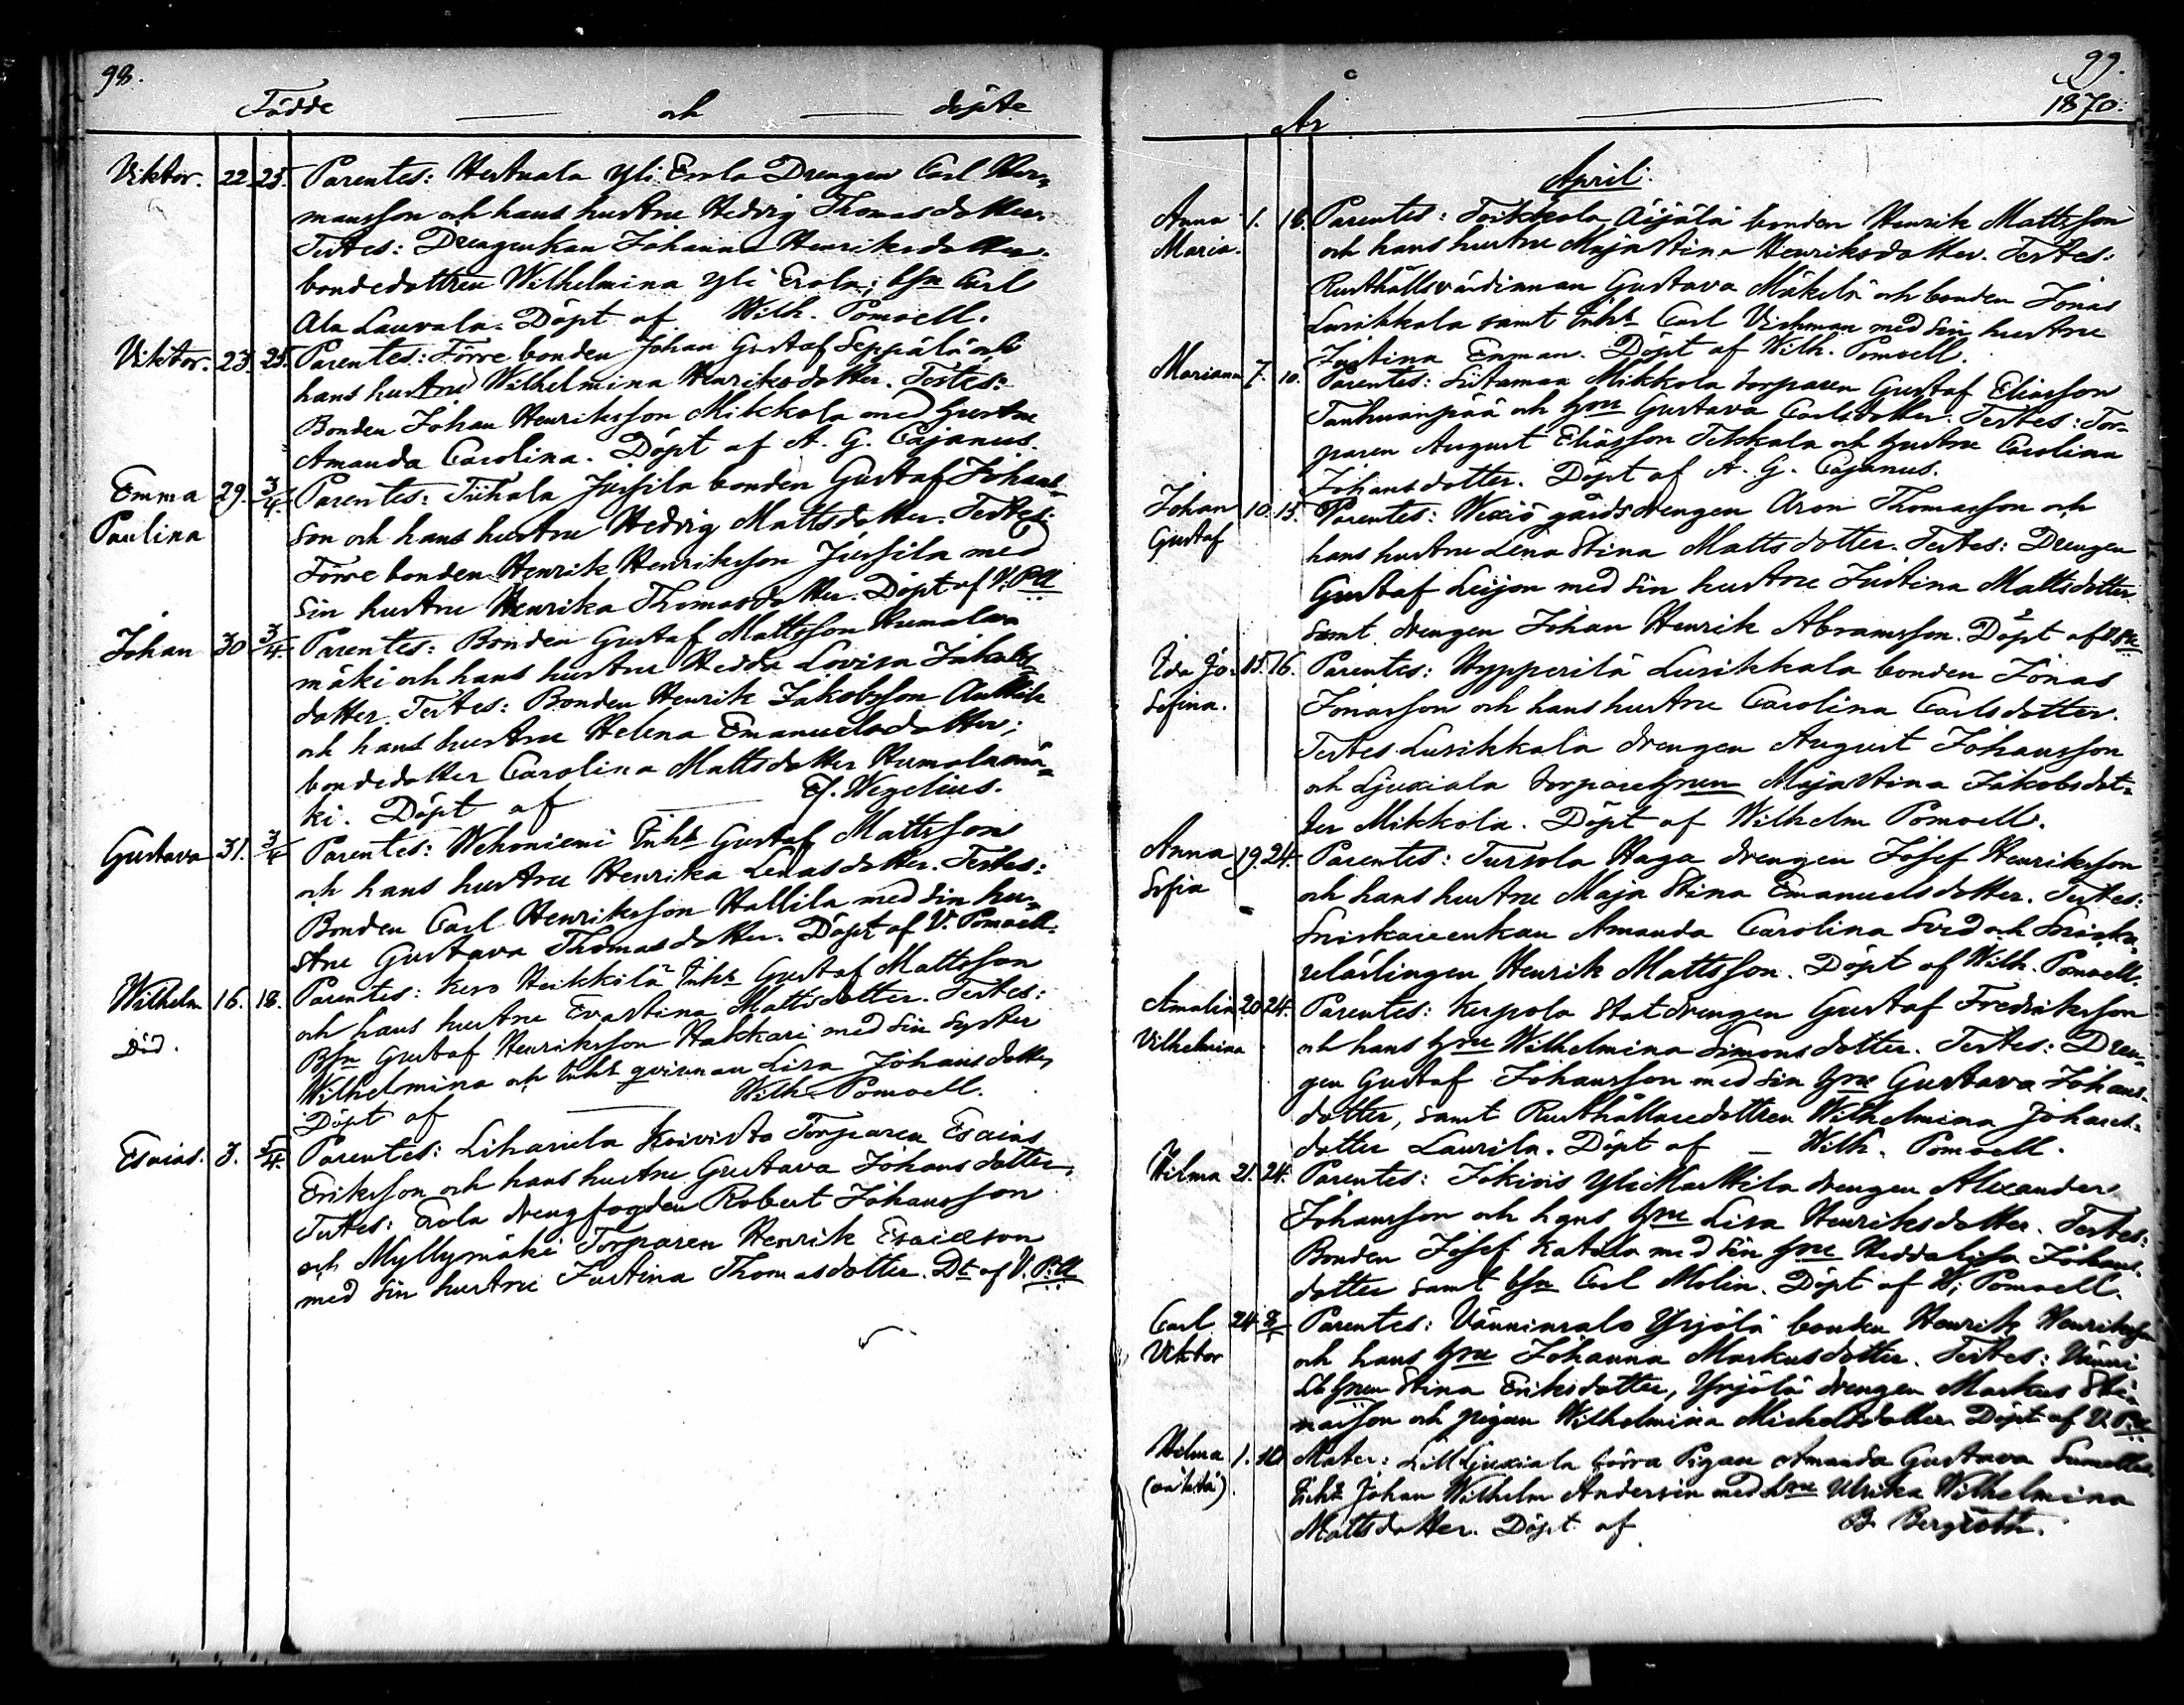 98.
Födde — och — döpte
Viktor. 22. 25. Parentes: Hertuala Yli Erola Drengen Carl Her=
mansson och hans hustru Hedvig Thomasdotter.
Testes: Drengenkan Johanna Henriksdotter.
bondedottren Wilhelmina Yli Erola; bsn Carl
Ala Lauvala. Döpt af Wilh. Pomoell.
Viktor. 23. 25. Parentes: Förre bonden Johan Gustaf Seppälä och
hans hustru Wilhelmina Henriksdotter. Testes:
Bonden Johan Henriksson Mikkola med hustru
Amanda Carolina. Döpt af A. G. Cajanus.
Emma 29. 3/4 Parentes: Tiihala Jussila bonden Gustaf Johans=
Paulina son och hans hustru Hedvig Mattsdotter. Testes:
Förre bonden Henrik Henriksson Jussila med
sin hustru Henrika Thomasdotter. Döpt af V. P:ll
Johan 30 3/4. Parentes: Bonden Gustaf Mattsson Humalan
mäki och hans hustru Hedda Lovisa Jakobs
dotter. Testes: Bonden Henrik Jakobsson Anttila
och hans hustru Helena Emanuelsdotter;
bondedotter Carolina Mattsdotter Humalamä=
ki. Döpt af — Ej. Wegelius.
Gustava 31. 3/4 Parentes: Wehoniemi Inhs Gustaf Mattsson
och hans hustru Henrika Lenasdotter. Testes:
Bonden Carl Henriksson Hallila med sin hu=
stru Gustava Thomasdotter. Döpt af V. Pomoell.
Wilhelm 16. 18. Parentes: Kero Heikkilä Inhs Gustaf Mattsson
och hans hustru Evastina Mattsdotter. Testes:
Död. Bsn Gustaf Henriksson Hakkari med sin syster
Wilhelmina och Inhs qvinnan Lisa Johansdotter
Döpt af — Wilh. Pomoell.
Esaias. 3. 5/4. Parentes: Liharula Koivisto Torparen Esaias
Eriksson och hans hustru Gustava Johansdotter.
Testes: Erola drengfogden Robert Johansson
och Myllymäki Torparen Henrik Esaiesson
med sin hustru Justina Thomasdotter. Dt af V. P:ll
99.
År — 1870.
April.
Anna 1. 18. Parentes: Toikkola Äijälä bonden Henrik Mattsson
Maria. och hans hustru Majastina Henriksdotter. Testes:
Rusthållsvärdinnan Gustava Mäkelä och bonden Jonas
Lusikkala samt Inhs Carl Vichman med sin hustru
Justina Enman. Döpt af Wilh. Pomoell.
Mariana 7. 10. Parentes: Liitamaa Mikkola torparen Gustaf Eliasson
Tanhuanpää och hru Gustava Carlsdotter. Testes: Tor=
paren August Eliasson Tikkala och hustru Carolina
Johansdotter. Döpt af A. G. Cajanus.
Johan 10. 15. Parentes: Wexiö gårdsdrengen Aron Thomasson och
Gustaf hans hustru Lena Stina Mattsdotter. Testes: Drengen
Gustaf Leijon med sin hustru Justina Mattsdotter
samt drengen Johan Henrik Abramsson. Döpt af V. P:ll
Ida Jo= 15. 16. Parentes: Hypperilä Lusikkala bonden Jonas
sefina. Jonasson och hans hustru Carolina Carlsdotter.
Testes Lusikkala drengen August Johansson
och Ljuxiala torparehrun Majastina Jakobsdot=
ter Mikkola. Döpt af Wilhelm Pomoell.
Anna 19. 24. Parentes: Tursola Haga drengen Josef Henriksson
Sofia och hans hustru Maja Stina Emanuelsdotter. Testes:
Snickareenkan Amanda Carolina Sved och Snicka=
relärlingen Henrik Mattsson. Döpt af Wilh. Pomoell.
Amalia 20 24. Parentes: Kerpola Statdrengen Gustaf Fredriksson
Vilhelmina och hans hru Wilhelmina Simonsdotter. Testes: Dren=
gen Gustaf Johansson med sin hru Gustava Johans=
dotter, samt Rusthållaredottren Wilhelmina Johans=
dotter Laurila. Döpt af — Wilh. Pomoell.
Hilma 21. 24. Parentes: Jokiois YliMarttila drengen Alexander
Johansson och hans hru Lisa Henriksdotter. Testes:
Bonden Josef Katila med sin hru Heddalisa Johans=
dotter samt bsn Carl Molin. Döpt af W. Pomoell.
Carl 24 8/5 Parentes: Vänninsalo Yrjölä bonden Henrik Henriksson
Viktor och hans hru Johanna Markusdotter. Testes: Vänni
hrun Stina Eriksdotter, Yrjölä drengen Markus
och pigan Wilhelmina Michelsdotter. Döpt af V. P:ll
Hilma 1. 10 Mater: Lill Ljuxiala förra Pigan Amanda Gustava
(oäkta). Inhs Johan Wilhelm Andersin med hru Ulrika Wilhelmina
Mattsdotter. Döpt af B. Bergroth.